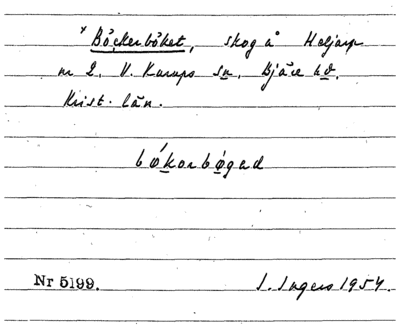 * Böckerböket, skog å Heljarp
nr 2. V. Karups sn. Bjäre hd.
Krist. län.
bǿkorbøged
Nr 5199.
I. Ingers 1954.